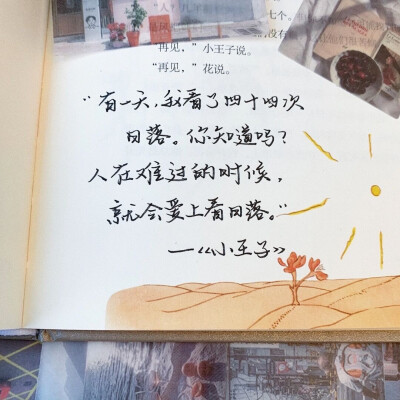 七个。
“再见，”小王子说。
“再见，”花说。
“有一天，我看了四十四次
日落。你知道吗？
人在难过的时候，
就会爱上看日落。”
—《小王子》